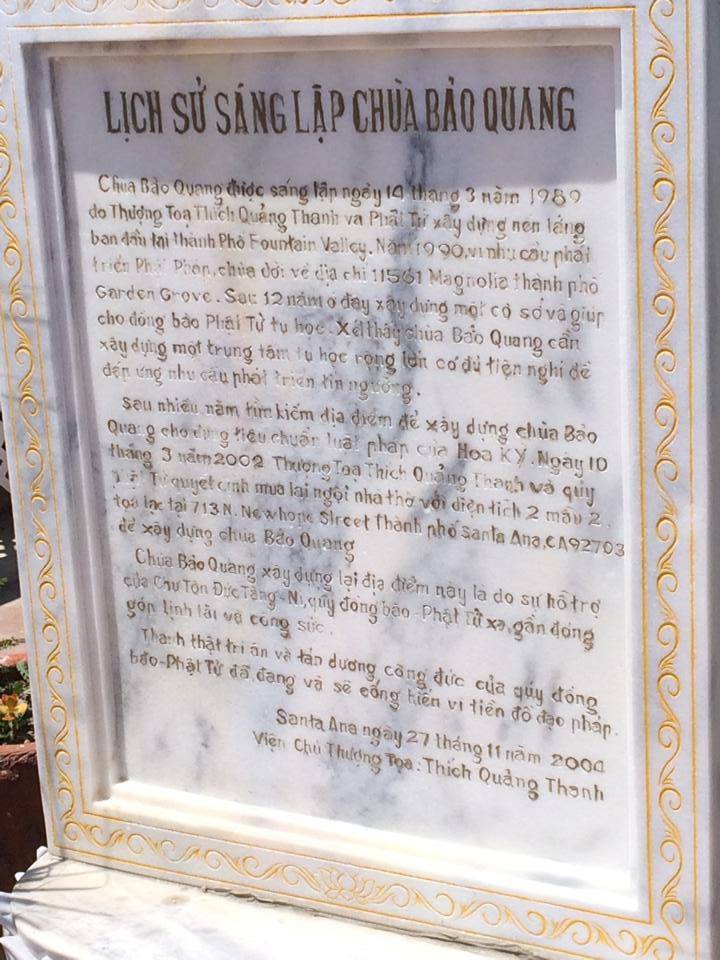 LỊCH SỬ SÁNG LẬP CHÙA BẢO QUANG
Chùa Bảo Quang được sáng lập ngày 14 tháng 3 năm 1989
do Thượng Toạ Thích Quảng Thanh và Phật Tử xây dựng nền tảng
ban đầu tại thành Phố Fountain Valley. Năm 1990, vì nhu cầu phát
triển Phật Pháp, chùa dời về địa chỉ 11561 Magnolia thành phố
Garden Grove. Sau 12 năm ở đây xây dựng một cơ sở và giúp
cho đồng bào Phật Tử tu học. Xét thấy chùa Bảo Quang cần
xây dựng một trung tâm tu học rộng lớn có đủ tiện nghi để
đáp ứng nhu cầu phát triển tín ngưỡng.
Sau nhiều năm tìm kiếm địa điểm để xây dựng chùa Bảo
Quang cho đúng tiêu chuẩn luật pháp của Hoa Kỳ. Ngày 10
tháng 3 năm 2002 Thượng Toạ Thích Quảng Thanh và quý
Tử quyết định mua lại ngôi nhà thờ với diện tích 2 mẫu 2.
toạ lạc tại 713 N. Newhope Street Thành phố Santa Ana, CA 92703
để xây dựng chùa Bảo Quang
Chùa Bảo Quang xây dựng lại địa điểm này là do sự hỗ trợ
của Chư Tôn Đức Tăng-Ni, quý đồng bào-Phật Tử xa, gần đóng
góp tịnh tài và công sức.
Thành thật tri ân và tán dương công đức của quý đồng
bào-Phật Tử đã, đang và sẽ cống hiến vì tiền đồ đạo pháp.
Santa Ana ngày 27 tháng 11 năm 2004
Viện Chủ Thượng Tọa: Thích Quảng Thanh